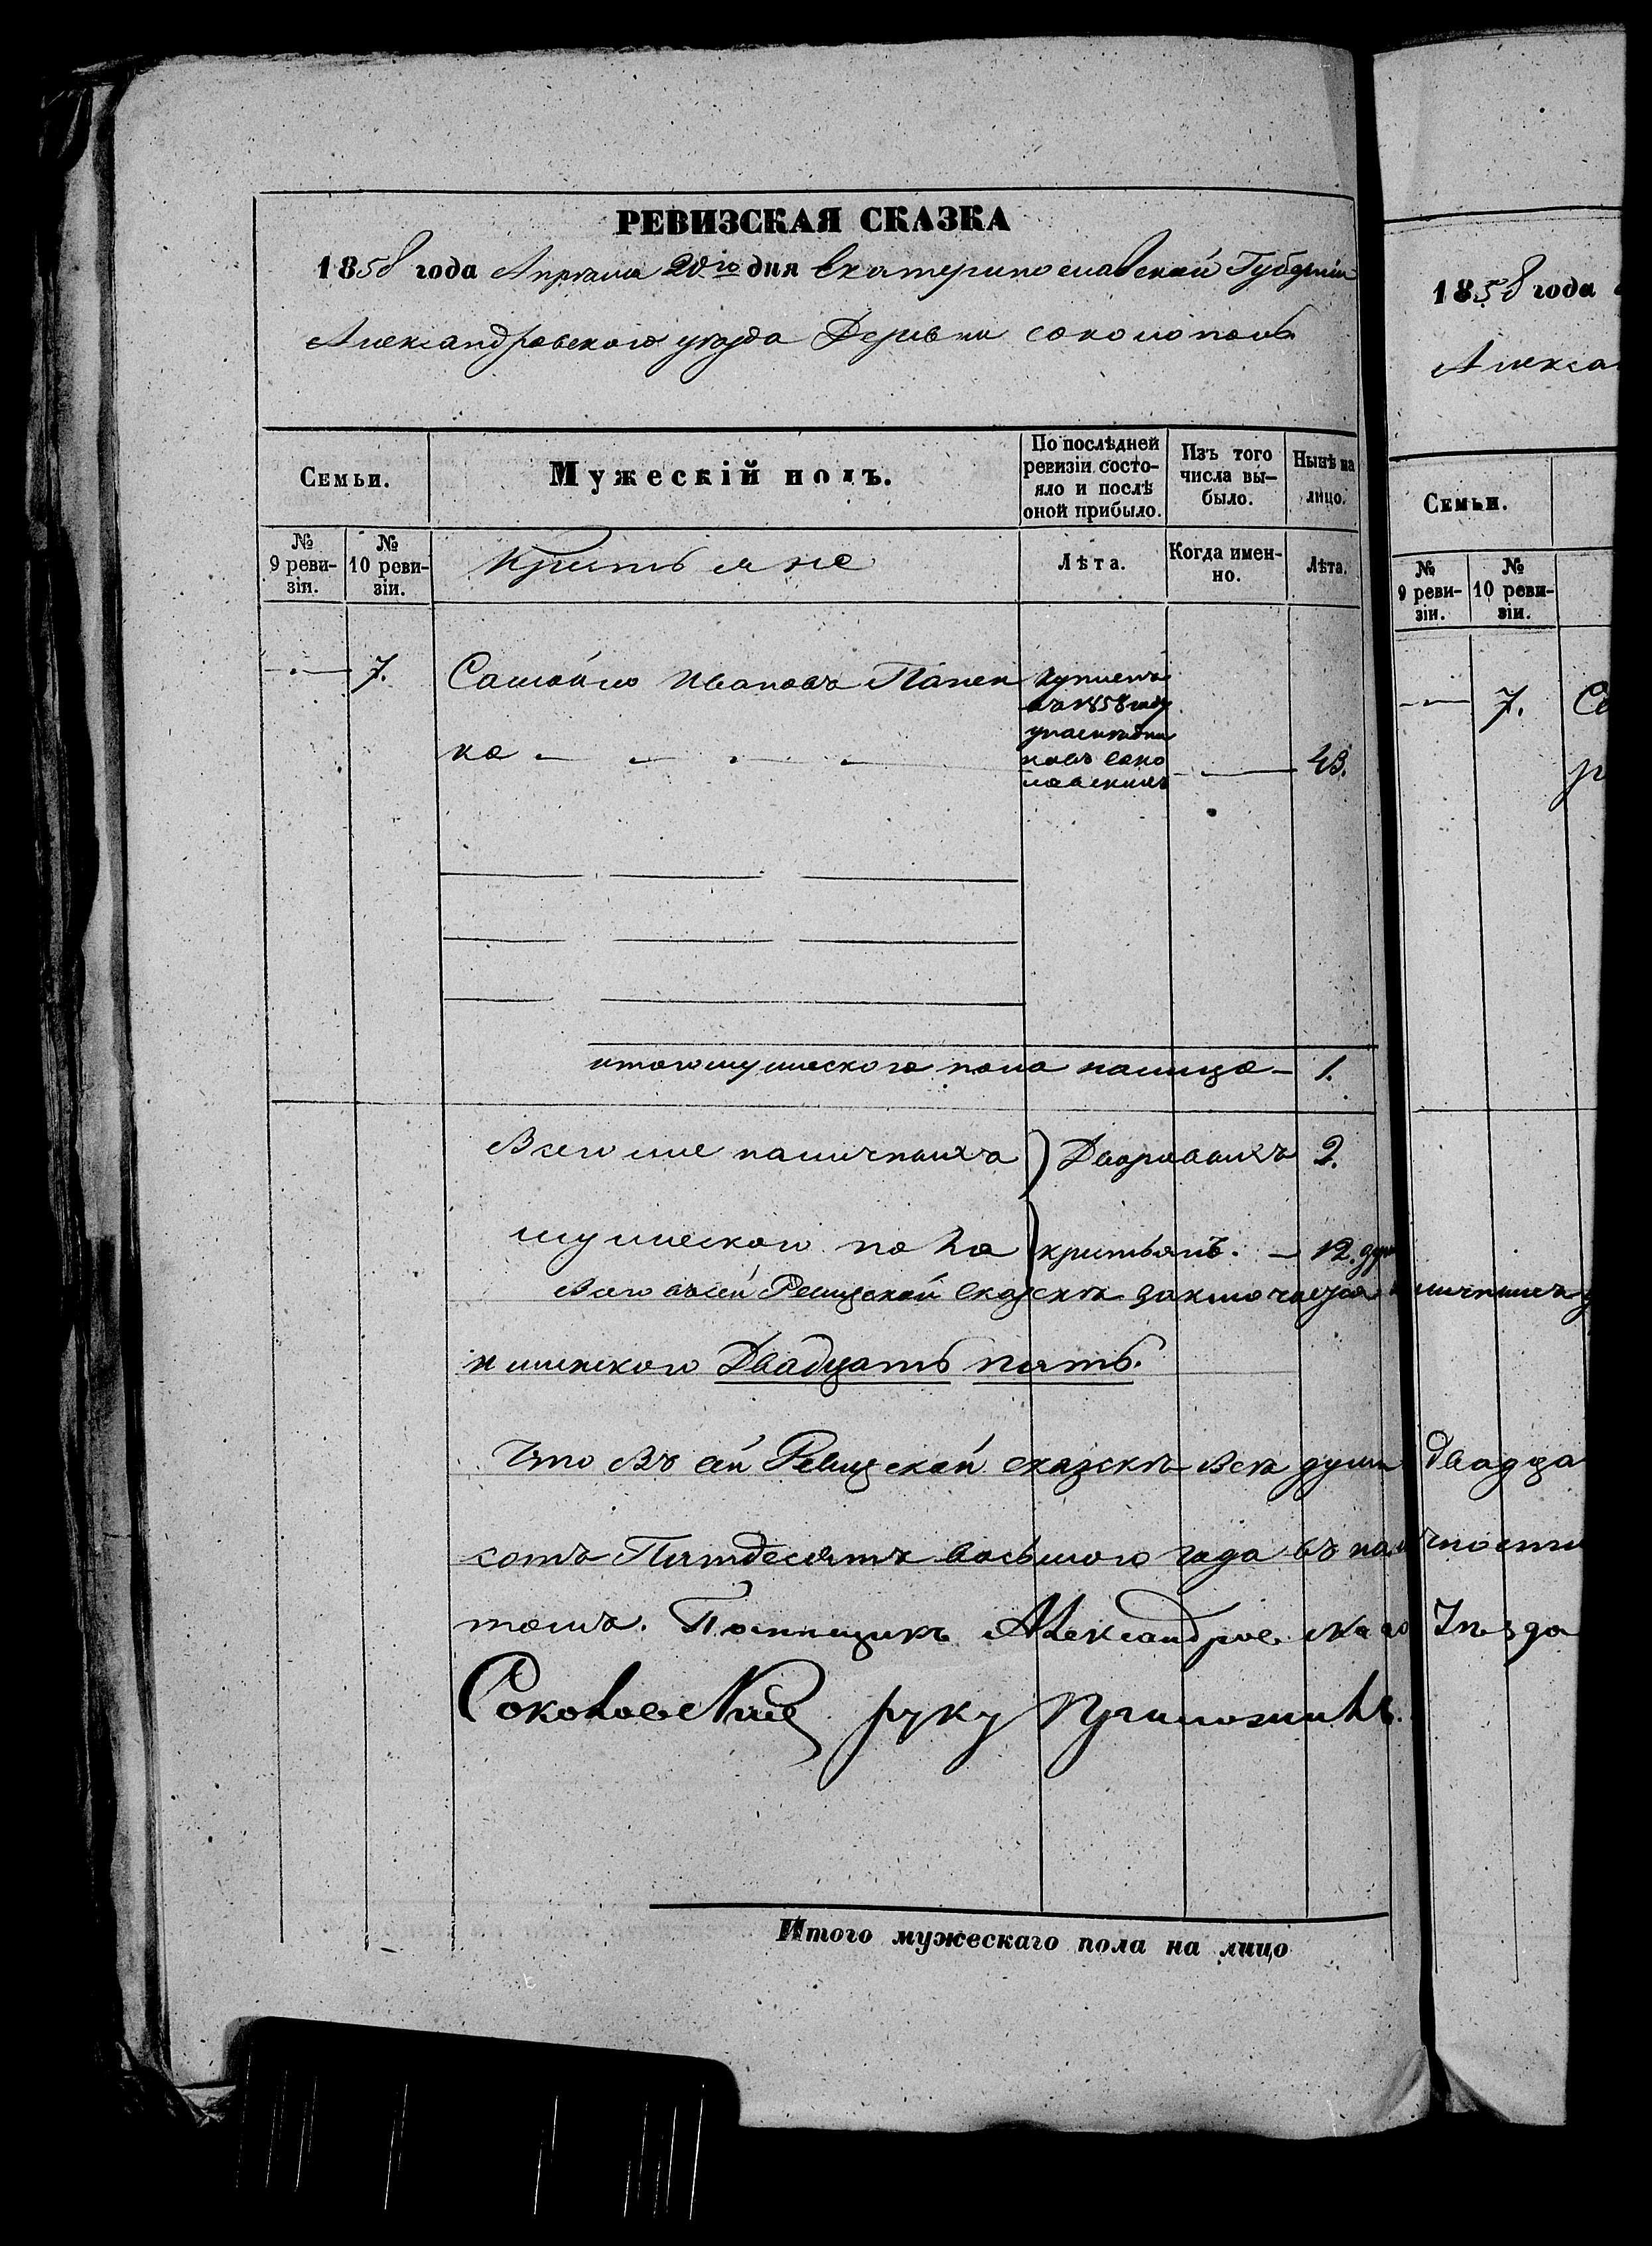 РЕВИЗСКАЯ СКАЗКА
1858 года Апреля 20го дня Екатеринославской Губерніи
Александровского уезда Деревни Соколополь
Семьи.
Мужескій полъ.
По послѣдней ревизіи состояло и послѣ оной прибыло.
Изъ того числа выбыло.
Нынѣ на лицо.
№ 9 ревизіи.
№ 10 ревизіи.
Крестьяне
Лѣта.
Когда именно.
Лѣта.
7. Самойло Ивановъ Панен
ко
Купленъ
въ 1858 году
43.
итого мужеского пола налицо 1.
Всего же наличныхъ Дворовыхъ 2.
мужеского пола крестьянъ. 12. душ
Всего въ сей Ревизской Сказкѣ заключается наличныхъ
и женского Двадцать пять.
Что въ сей Ревизской сказкѣ всѣ души двадца
сотъ Пятдесятъ восьмого года въ наличности
томъ. Помещикъ Александровского Уѣзда
Соколовскій руку приложилъ.
Итого мужескаго пола на лицо
1858 года
Алекса
Семьи.
№ 9 ревизіи.
№ 10 ревизіи.
7.